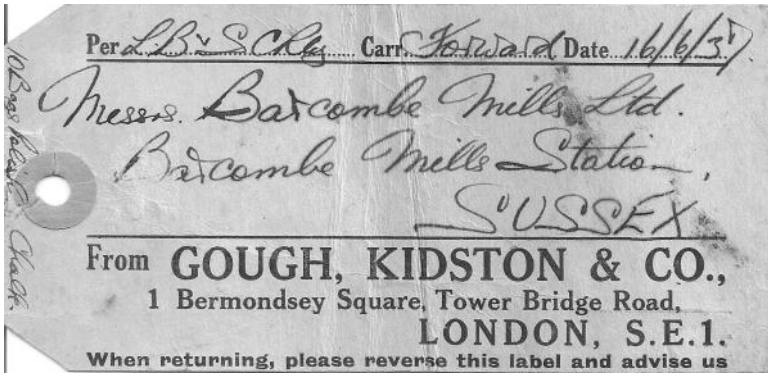 Per L.B. & S.C Rly Carr. Forward Date 16/6/37
Messrs. Barcombe Mills Ltd.
Barcombe Mills Station,
SUSSEX
From GOUGH, KIDSTON & CO.,
1 Bermondsey Square, Tower Bridge Road,
LONDON, S.E.1.
When returning, please reverse this label and advise us
10 Bags Chalk.